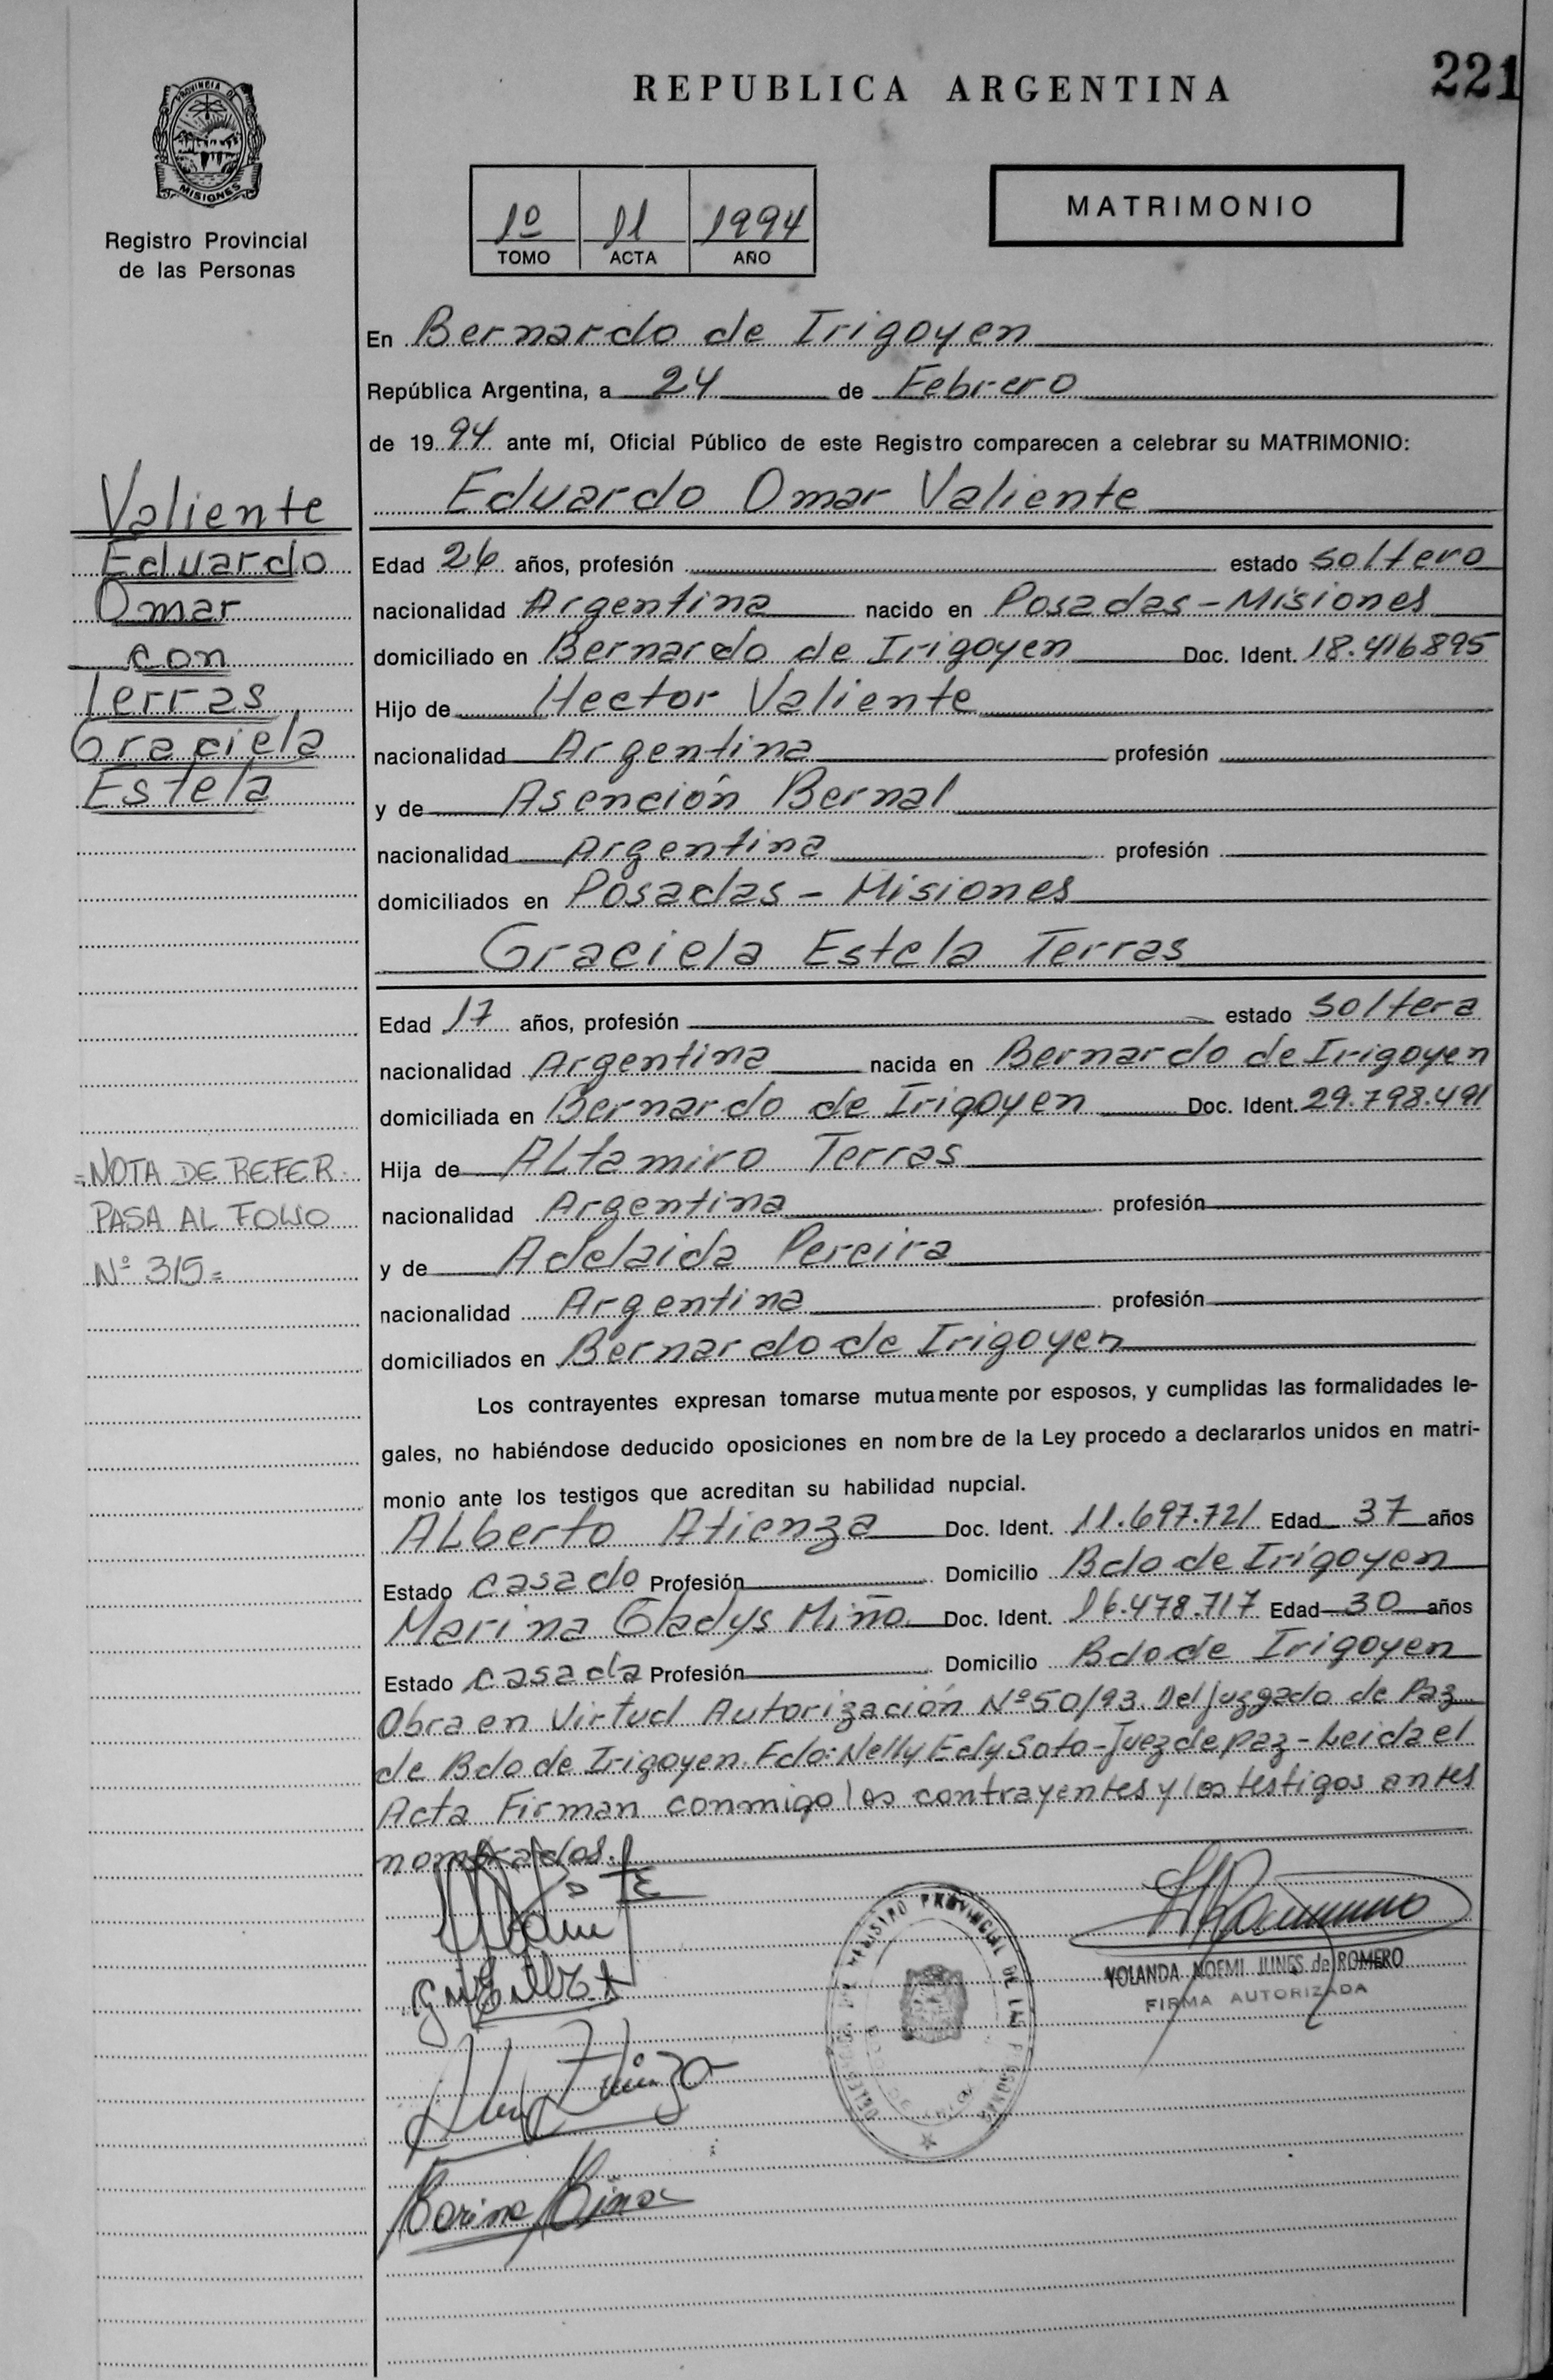 REPUBLICA ARGENTINA
221
PROVINCIA DE
MISIONES
Registro Provincial
de las Personas
1º 11 1994
TOMO ACTA AÑO
MATRIMONIO
En Bernardo de Irigoyen
República Argentina, a 24 de Febrero
de 19 94 ante mí, Oficial Público de este Registro comparecen a celebrar su MATRIMONIO:
Eduardo Omar Valiente
Valiente
Eduardo
Omar
con
Terras
Graciela
Estela
Edad 26 años, profesión estado soltero
nacionalidad Argentina nacido en Posadas - Misiones
domiciliado en Bernardo de Irigoyen Doc. Ident. 18.416895
Hijo de Hector Valiente
nacionalidad Argentina profesión
y de Asención Bernal
nacionalidad Argentina profesión
domiciliados en Posadas - Misiones
Graciela Estela Terras
Edad 17 años, profesión estado soltera
nacionalidad Argentina nacida en Bernardo de Irigoyen
domiciliada en Bernardo de Irigoyen Doc. Ident. 29.798.491
Hija de ALtamiro Terras
nacionalidad Argentina profesión
y de Adelaida Pereira
nacionalidad Argentina profesión
domiciliados en Bernardo de Irigoyen
=NOTA DE REFER.
PASA AL FOLIO
Nº 315=
Los contrayentes expresan tomarse mutuamente por esposos, y cumplidas las formalidades le-
gales, no habiéndose deducido oposiciones en nombre de la Ley procedo a declararlos unidos en matri-
monio ante los testigos que acreditan su habilidad nupcial.
ALberto Atienza Doc. Ident. 11.697.721 Edad 37 años
Estado casado Profesión Domicilio Bdo de Irigoyen
Marina Gladys Miño Doc. Ident. 16.478.717 Edad 30 años
Estado casada Profesión Domicilio Bdo de Irigoyen
Obra en Virtud Autorización Nº 50/93. Del Juzgado de Paz
de Bdo de Irigoyen. Fdo: Nelly Edy Soto - Juez de Paz - Leida el
Acta Firman conmigo los contrayentes y los testigos antes
nombrados.
REGISTRO PROVINCIAL DE LAS PERSONAS
YOLANDA NOEMI JUNES de ROMERO
FIRMA AUTORIZADA